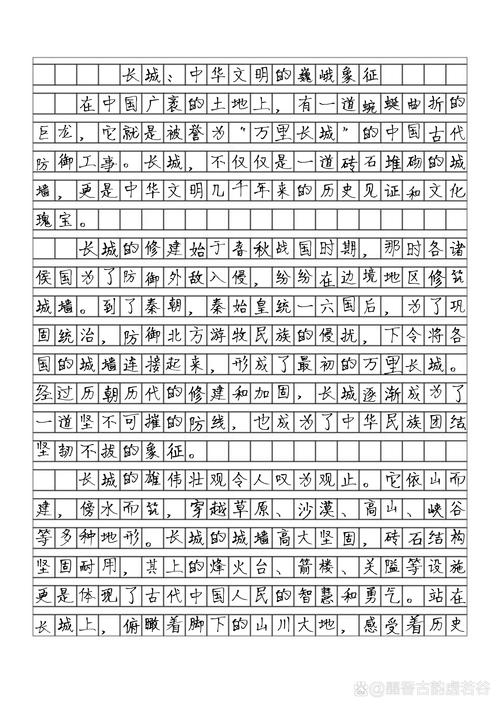 长城：中华文明的巍峨象征
在中国广袤的土地上，有一道蜿蜒曲折的
巨龙，它就是被誉为“万里长城”的中国古代
防御工事。长城，不仅仅是一道砖石堆砌的城
墙，更是中华文明几千年来的历史见证和文化
瑰宝。
长城的修建始于春秋战国时期，那时各诸
侯国为了防御外敌入侵，纷纷在边境地区修筑
城墙。到了秦朝，秦始皇统一六国后，为了巩
固统治，防御北方游牧民族的侵扰，下令将各
国的城墙连接起来，形成了最初的万里长城。
经过历朝历代的修建和加固，长城逐渐成为了
一道坚不可摧的防线，也成为了中华民族团结
坚韧不拔的象征。
长城的雄伟壮观令人叹为观止。它依山而
建，傍水而筑，穿越草原、沙漠、高山、峡谷
等多种地形。长城的城墙高大坚固，砖石结构
坚固耐用，其上的烽火台、箭楼、关隘等设施
更是体现了古代中国人民的智慧和勇气。站在
长城上，俯瞰着脚下的山川大地，感受着历史